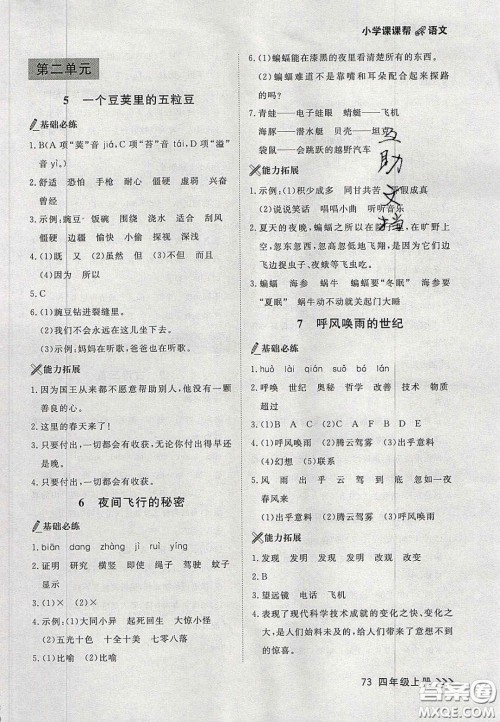 小学课课帮 语文
第二单元
5 一个豆荚里的五粒豆
基础必练
1.B(A项“荚”音jiá,C项“苔”音tái,D项“溢”
音yì。)
2.舒适 恐怖 手枪 耐心 僵硬 虚弱 兴奋
曾经
3.示例:豌豆 饭碗 围绕 浇水 适合 刮风
僵硬 疆土 青苔 愉快 小偷 探视 深浅
4.(1)既 又 (2)虽然 但 (3)不但 而且
(4)因为 所以
5.C
6.(1)豌豆钻进裂缝里。
(2)我们不会永远在这儿说话。
(3)示例:妈妈在听歌,爸爸也在听歌。
能力拓展
1.因为国王从来都不愿意帮助别人,他没有一颗
善良的心。
2.这里的春天来了!
3.只要付出,一切都会有收获。
只要付出,一切都会有收获。
6 夜间飞行的秘密
基础必练
1.biān dang zhàng jì ruì yíng
2.证明 研究 横竖 即使 绳子 驾驶 蚊子
显示
3.(1)× (2)×
4.(1)示例:大同小异 起死回生 大惊小怪
(2)五光十色 十全十美 七零八落
5.(1)比喻 (2)比喻
6.(1)蝙蝠能在漆黑的夜里看清楚所有的东西。
(2)蝙蝠难道不是靠嘴和耳朵配合起来探路
的吗?
7.青蛙——电子蛙眼 蜻蜓——飞机
海豚——潜水艇 贝壳——坦克
袋鼠——会跳跃的越野汽车
能力拓展
1.示例:(1)积少成多 同甘共苦 弄假成真
(2)说说笑话 唱唱小曲 听听音乐
2.夏天的夜晚,蝙蝠之所以在庭院里,在旷野上
空,忽东忽西,忽高忽低地飞翔,是因为它们在
捕食飞虫、夜蛾等飞虫吃。
3.蝙蝠 海参 蜗牛 蝙蝠要“冬眠” 海参要
“夏眠” 蜗牛动不动就关起门大睡
7 呼风唤雨的世纪
基础必练
1.huò lài qián suǒ bó qì
2.呼唤 世纪 奥秘 哲学 改善 技术 物质
超过
3.(1)B A C (2)A F B D E
4.(1)呼风唤雨 (2)腾云驾雾 (3)出乎意料
(4)幻想 (5)联系
5.风 雨 出 乎 云 驾 到 忽 如 一 夜
春风来
(1)出乎意料 (2)腾云驾雾
能力拓展
1.发现 发明 发明 发现 改变 改观
2.B
3.望远镜 电话 飞机
4.表现了现代科学技术成就的变化之快、变化之
大,极大地改善了人们的生活。
互助文档
73 四年级上册
答案圈
MXQE.COM